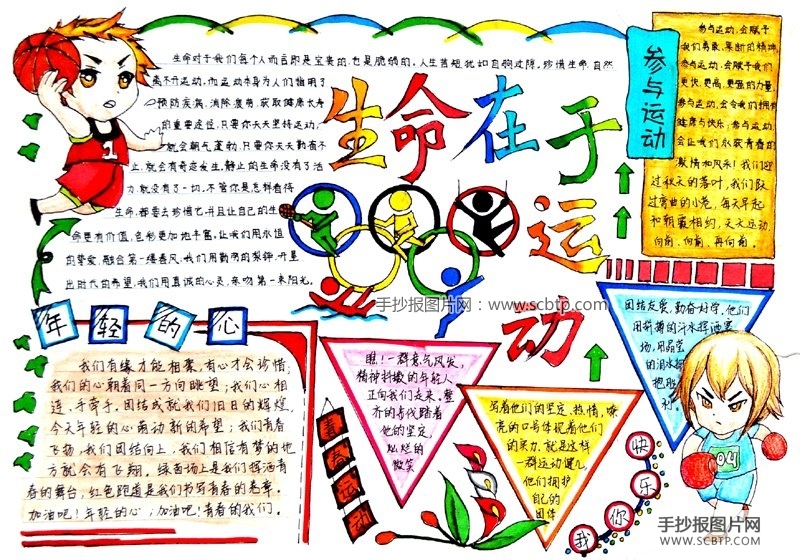 生命在于
运
动
生命对于我们每个人而言即是宝贵的,也是脆弱的,人生苦短犹如白驹过隙,珍惜生命,自然
离不开运动,而运动本身为人们指明了
预防疾病,消除疲劳,获取健康长寿
的重要途径,只要你天天坚持运动,
就会朝气蓬勃,只要你天天勤奋不
止,就会有奇迹发生,静止的生命没有了活
力,就没有了一切,不管你是怎样看待
生命,都要去珍惜它,并且让自己的生
命更有价值,色彩更加地丰富,让我们用永恒
的挚爱,融合第一缕春风,我们用勤劳的犁铧,开垦
出时代的希望,我们用真诚的心灵,亲吻第一束阳光。
参与运动
参与运动,会赋予
我们勇敢、果断的精神,
参与运动,会赋予我们
更快、更高、更强的力量,
参与运动,会令我们拥有
健康与快乐;参与运动,
会让我们永获青春的
激情和风采!我们迎
过秋天的落叶,我们跃
过弯曲的小巷,每天早起
和朝霞相约,天天运动
向前、向前、再向前。
手抄报图片网:www.scbtp.com
年轻的心
我们有缘才能相聚,有心才会珍惜;
我们的心朝着同一方向眺望;我们心相
连、手牵手。团结成就我们旧日的辉煌,
今天年轻的心萌动新的希望;我们有青春
飞扬,我们团结向上,我们相信有梦的地
方就会有飞翔。绿茵场上是我们挥洒青
春的舞台,红色跑道是我们书写青春的卷章。
加油吧!年轻的心;加油吧!青春的我们。
青春运动
瞧!一群意气风发,
精神抖擞的年轻人
正向我们走来。整
齐的步伐踏着
他的坚定,
灿烂的
微笑
写着他们的坚定、热情,嘹
亮的口号体现着他们
的实力,就是这样
一群运动健儿,
他们拥护
自己的
团体
团结友爱,勤奋好学,他们
用拼搏的汗水挥洒赛
场,用晶莹
的泪水
1
04
我你快乐
手抄报图片网
SCBTP.COM